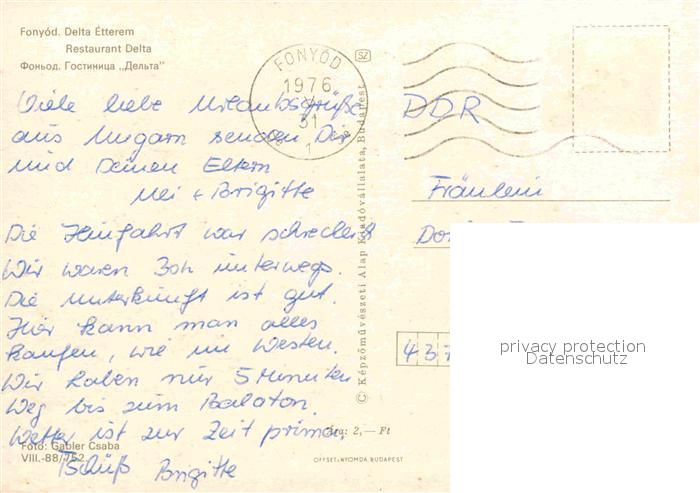 Fonyód. Delta Étterem
Restaurant Delta
Фоньод. Гостиница „Дельта"
FONYÓD
1976
31
SZ
Viele liebe Urlaubsgrüße
aus Ungarn senden Dir
und Deinen Eltern
Brigitte
Die Hinfahrt war schrecklich
Wir waren 30h unterwegs.
Die Unterkunft ist gut.
Hier kann man alles
kaufen, wie im Westen.
Wir haben nur 5 Minuten
Weg bis zum Balaton.
Wetter ist zur Zeit prima,
Tschüß Brigitte
Foto: Gabler Csaba
VIII.-88/752
Ára: 2,— Ft
OFFSET-NYOMDA, BUDAPEST
© Képzőművészeti Alap Kiadóvállalata, Budapest
DDR
Fräulein
437
privacy protection
Datenschutz